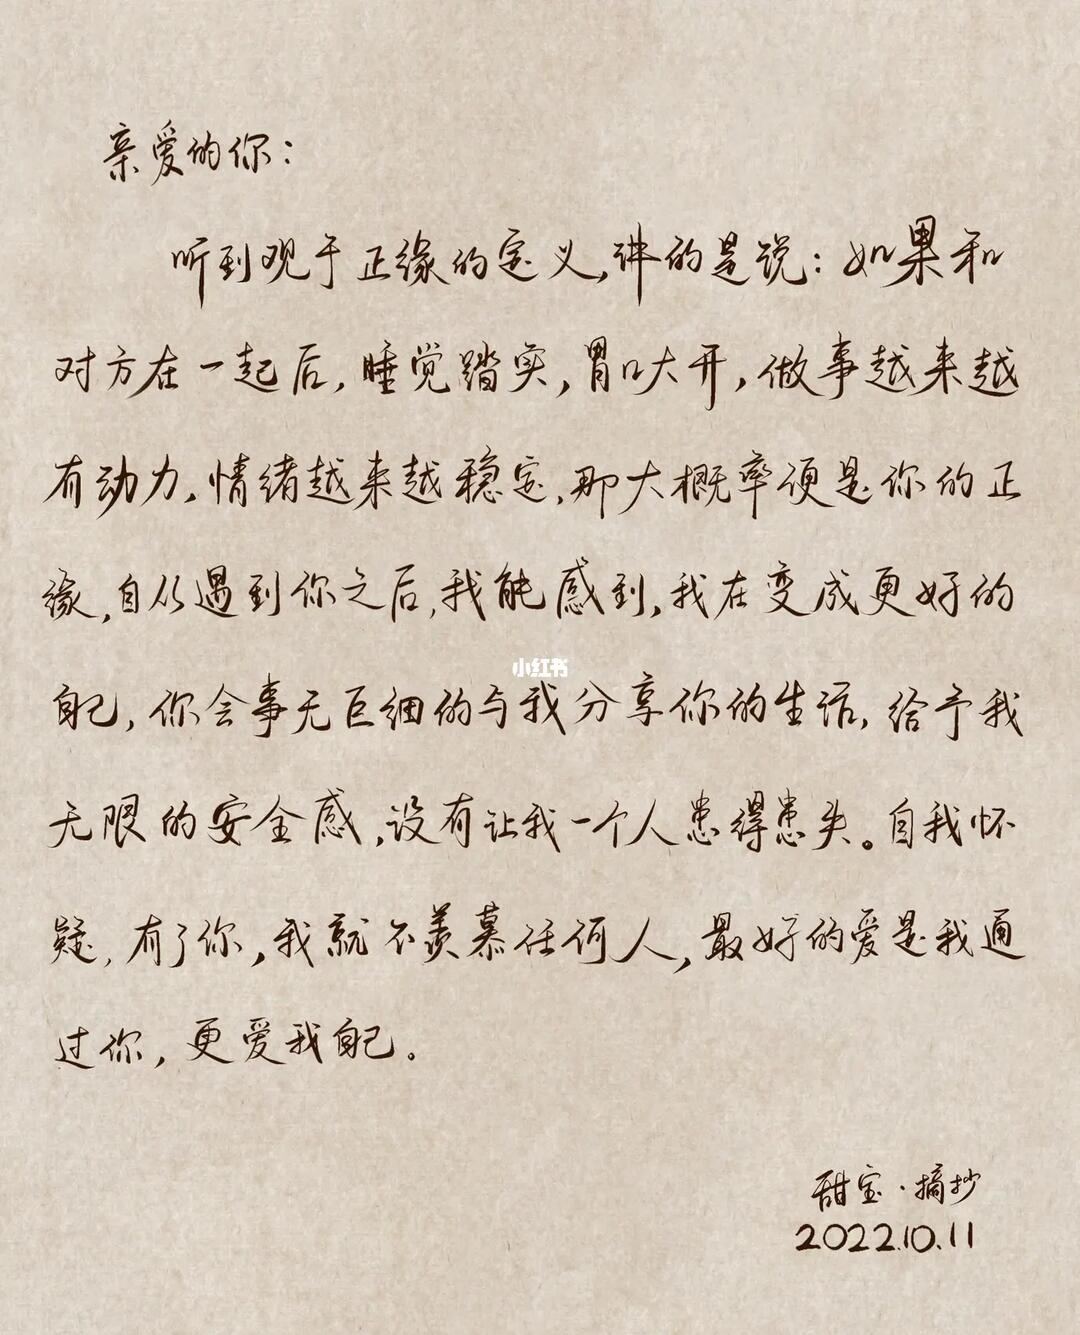 亲爱的你：
听到观于正缘的定义，讲的是说：如果和
对方在一起后，睡觉踏实，胃口大开，做事越来越
有动力，情绪越来越稳定，那大概率便是你的正
缘，自从遇到你之后，我能感到，我在变成更好的
自己，你会事无巨细的与我分享你的生活，给予我
无限的安全感，没有让我一个人患得患失。自我怀
疑，有了你，我就不羡慕任何人，最好的爱是我通
过你，更爱我自己。
小红书
甜宝·摘抄
2022.10.11